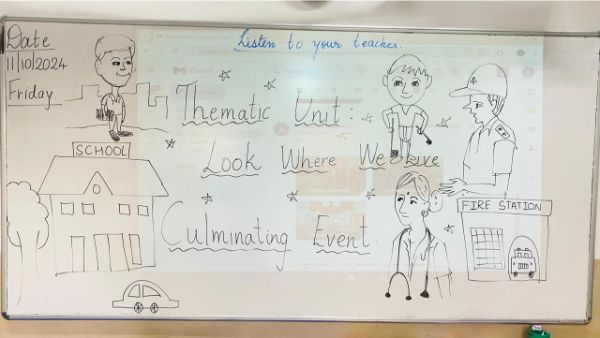 Listen to your teacher.
Date
11/10/2024
Friday
Thematic Unit:
Look Where We Live
Culminating Event
SCHOOL
FIRE STATION